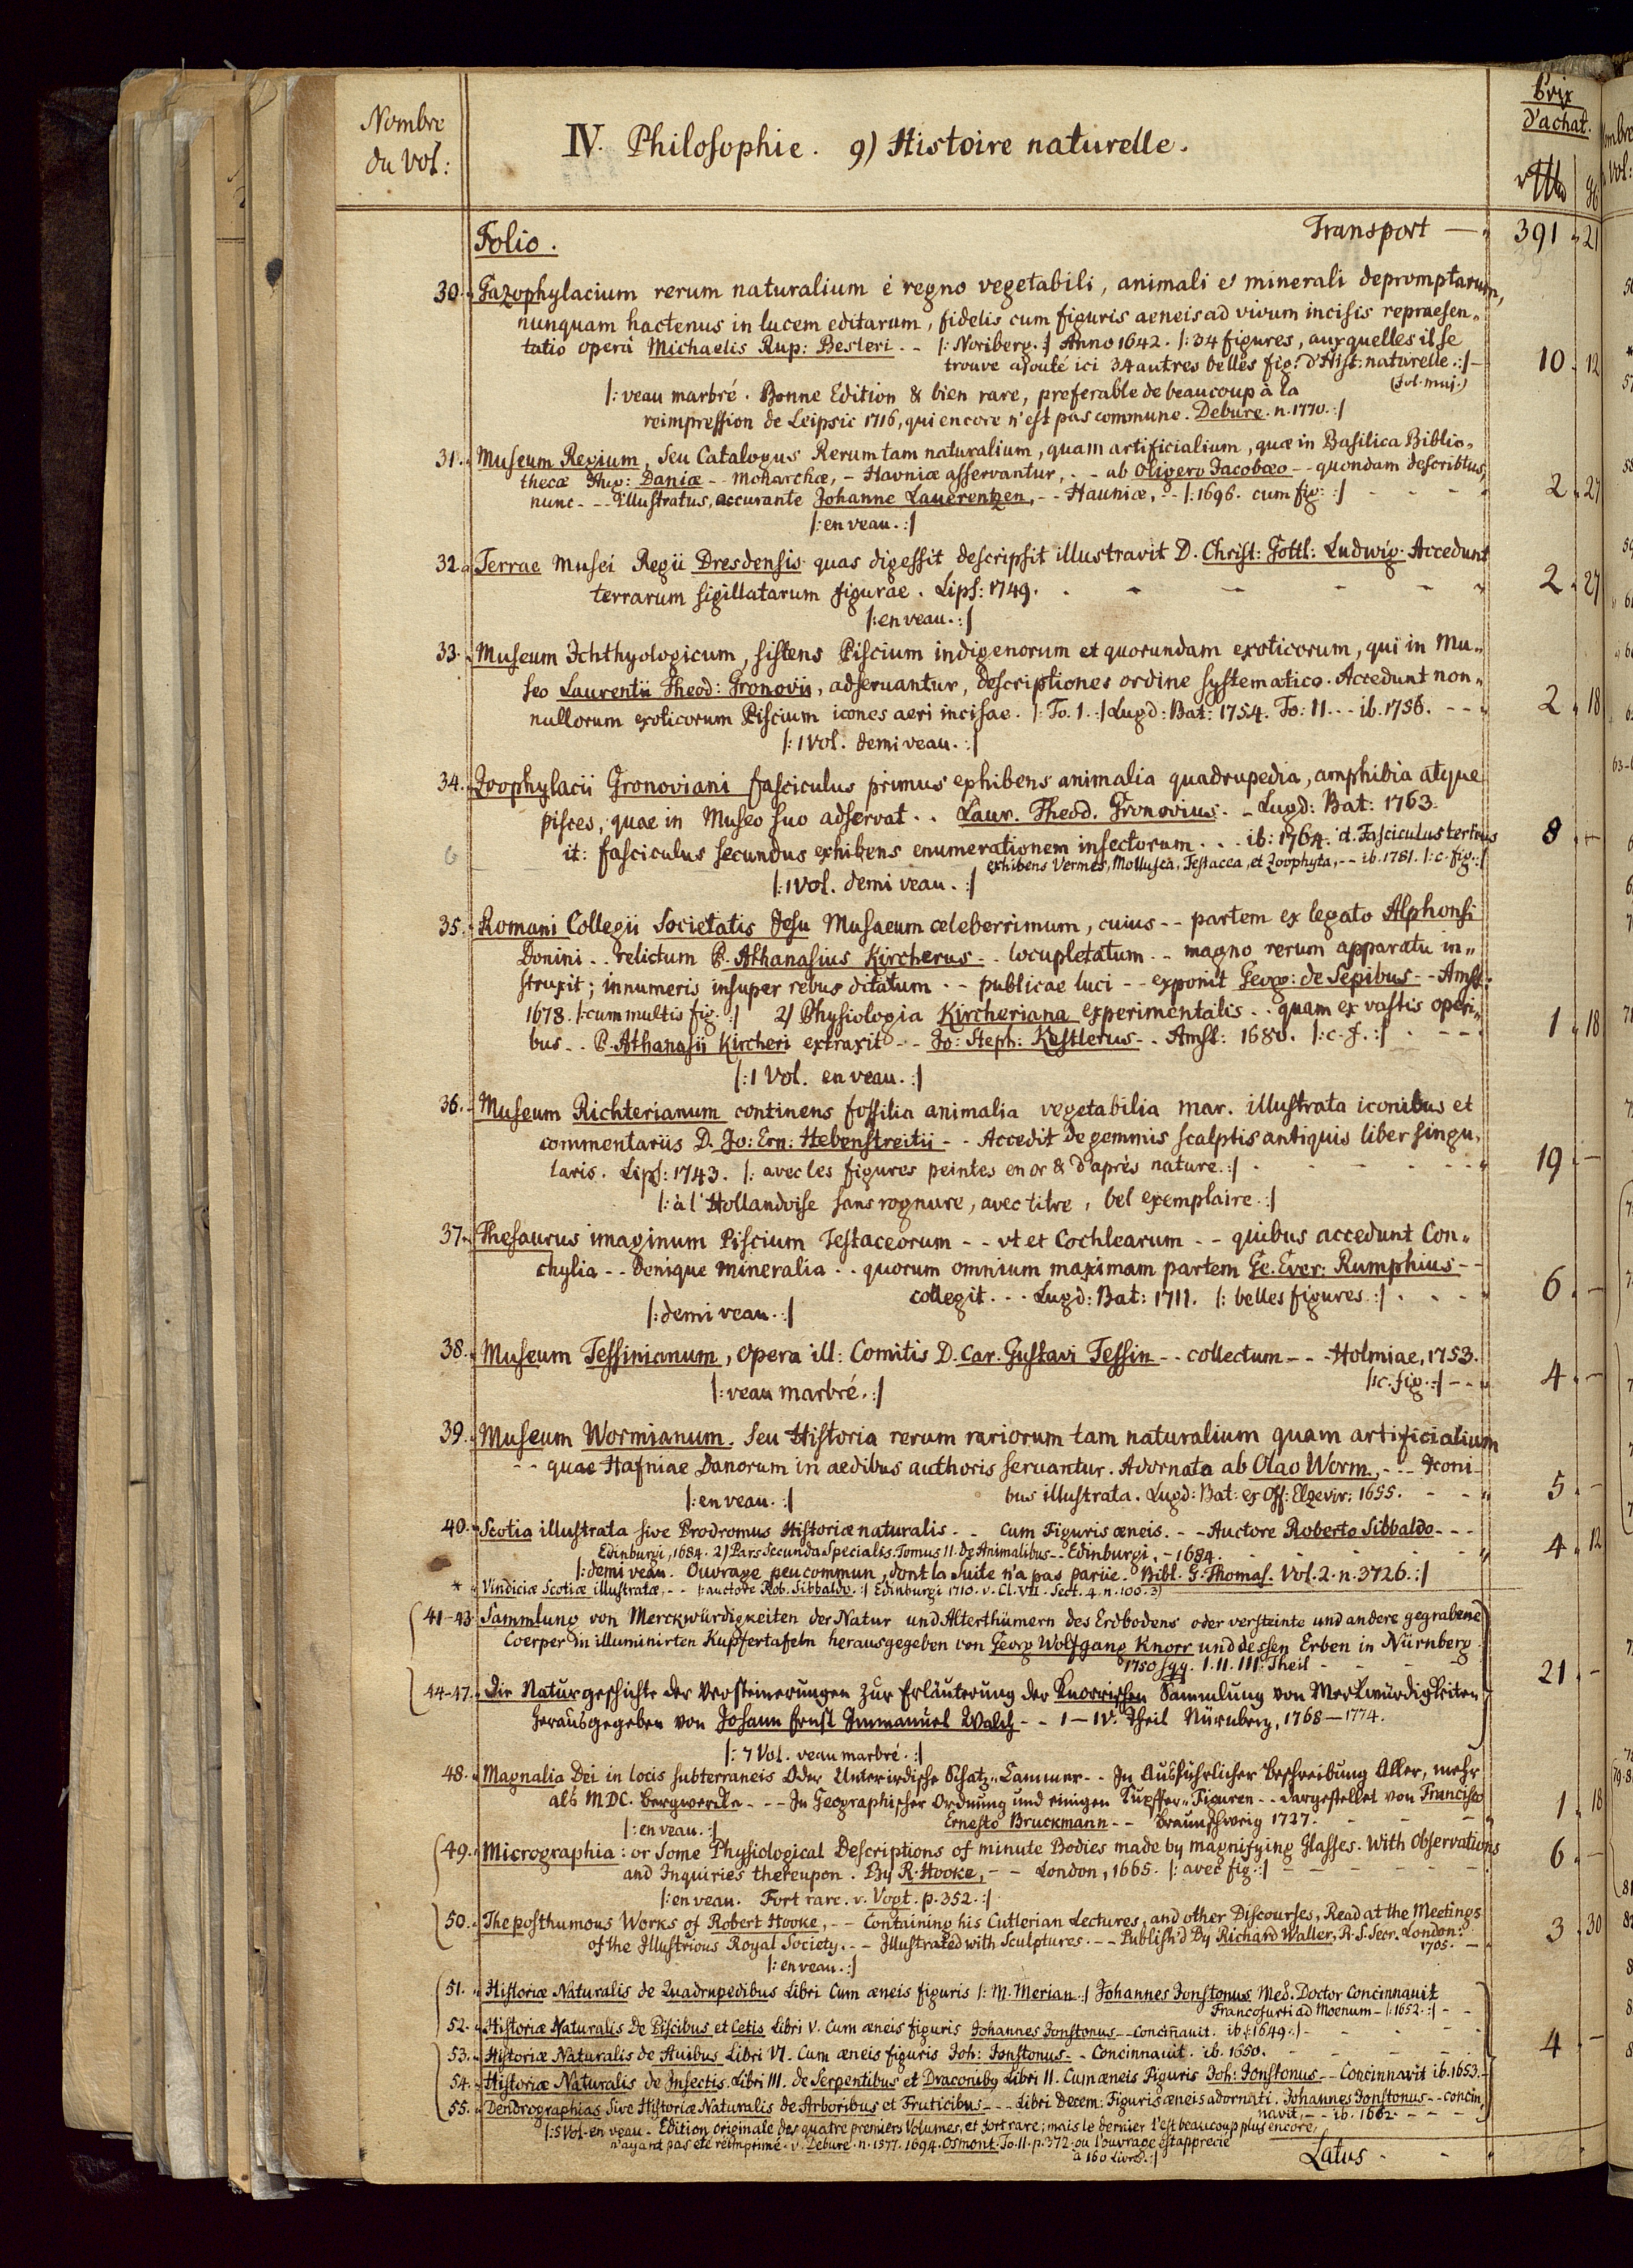 Nombre
du Vol:
IV. Philosophie. 9) Histoire naturelle.
Prix
d'achat.
Folio.
Transport — 391 21
30. Gazophylacium rerum naturalium è regno vegetabili, animali et minerali depromptarum,
nunquam hactenus in lucem editarum, fidelis cum figuris aeneis ad vivum incisis repraesen-
tatio operâ Michaelis Rup: Besleri. - |: Noriberg. :| Anno 1642. |: 34 figures, auxquelles il se
trouve ajouté ici 34 autres belles fig: d'Hist: naturelle. :| — 10 12
(fol. maj.)
|: veau marbré. Bonne Edition & bien rare, preferable de beaucoup à la
reimpression de Leipsic 1716, qui encore n'est pas commune. Debure. n. 1770. :|
31. Museum Regium, Seu Catalogus Rerum tam naturalium, quam artificialium, quæ in Basilica Biblio-
thecæ Aug: Daniæ - - Monarchæ, - Havniæ asservantur, - - ab Oligero Jacobæo - - quondam describtus,
nunc - - - Illustratus, accurante Johanne Lauerentzen, - - Hauniæ, - - |: 1696. cum fig: :| - - - - 2 27
|: en veau. :|
32. Terrae Musei Regii Dresdensis quas digessit descripsit illustravit D. Christ: Gottl: Ludwig. Accedunt
terrarum sigillatarum figurae. Lips: 1749. - - - - - 2 27
|: en veau. :|
33. Museum Ichthyologicum, sistens Piscium indigenorum et quorundam exoticorum, qui in Mu-
seo Laurentii Theod: Gronovii, adservantur, descriptiones ordine systematico. Accedunt non-
nullorum exoticorum Piscium icones aeri incisae. |: To. 1. :| Lugd: Bat: 1754. To: 11. - - ib. 1756. - - - 2 18
|: 1 Vol. demi veau. :|
34. Zoophylacii Gronoviani fasciculus primus exhibens animalia quadrupedia, amphibia atque
pisces, quae in Museo suo adservat - - Laur. Theod. Gronovius. - Lugd: Bat: 1763.
it: fasciculus secundus exhibens enumerationem insectorum - - - ib: 1764. it. Fasciculus tertius 8 —
exhibens Vermes, Mollusca, Testacea, et Zoophyta, - - ib. 1781. |: c. fig. :|
|: 1 Vol. demi veau. :|
35. Romani Collegii Societatis Jesu Musaeum celeberrimum, cuius - - partem ex legato Alphonsi
Donini - - relictum P. Athanasius Kircherus - - locupletatum - - magno rerum apparatu in-
struxit; innumeris insuper rebus ditatum - - publicae luci - - exponit Georg: de Sepibus - - Amst:
1678. |: cum multis fig. :| 2) Physiologia Kircheriana experimentalis - - quam ex vastis operi-
bus - - P. Athanasii Kircheri extraxit - - Jo: Steph: Kestlerus - - Amst: 1680. |: c. f. :| - - - - 1 18
|: 1 Vol. en veau. :|
36. Museum Richterianum continens fossilia animalia vegetabilia mar. illustrata iconibus et
commentariis D. Jo: Ern: Hebenstreitii - - Accedit de gemmis scalptis antiquis liber singu-
laris. Lips: 1743. |: avec les figures peintes en or & d'après nature. :| - - - - - 19 —
|: à l'Hollandoise sans rognure, avec titre, bel exemplaire. :|
37. Thesaurus imaginum Piscium Testaceorum - - vt et Cochlearum - - quibus accedunt Con-
chylia - - denique mineralia - - quorum omnium maximam partem Ge. Ever: Rumphius - -
collegit - - - Lugd: Bat: 1711. |: belles figures. :| - - - - 6 —
|: demi veau. :|
38. Museum Tessinianum, opera ill: Comitis D. Car. Gustavi Tessin - - collectum - - - Holmiae, 1753.
|: c. fig. :| - - - 4 —
|: veau marbré. :|
39. Museum Wormianum. Seu Historia rerum rariorum tam naturalium quam artificialium
- - quae Hafniae Danorum in aedibus authoris servantur. Adornata ab Olao Worm, - - - Iconi-
bus illustrata. Lugd: Bat: ex Off: Elzevir: 1655. - - - 5 —
|: en veau. :|
40. Scotia illustrata sive Prodromus Historiæ naturalis - - Cum Figuris æneis. - - Auctore Roberto Sibbaldo - - -
Edinburgi, 1684. 2) Pars Secunda Specialis. Tomus II. de Animalibus - - Edinburgi, - 1684. - - - - 4 12
|: demi veau. Ouvrage peu commun, dont la suite n'a pas parüe. Bibl. G. Thomas. Vol. 2. n. 3726. :|
* Vindiciæ Scotiæ illustratæ, - - |: auctore Rob. Sibbaldo. :| Edinburgi 1710. v. Cl. VII. Sect. 4. n. 100. 3)
41-43. Sammlung von Merckwürdigkeiten der Natur und Alterthümern des Erdbodens oder versteinte und andere gegrabene
Coerper in illuminirten Kupfertafeln herausgegeben von Georg Wolfgang Knorr und dessen Erben in Nürnberg
1750 sqq. I. II. III. Theil - - - - 21 —
44-47. Die Naturgeschichte der Versteinerungen zur Erläuterung der Knorrischen Sammlung von Merkwürdigkeiten
herausgegeben von Johann Ernst Immanuel Walch - - I — IV. Theil Nürnberg, 1768 — 1774.
|: 7 Vol. veau marbré. :|
48. Magnalia Dei in locis subterraneis Oder Unterirdische Schatz-Cammer - - In Ausführlicher Beschreibung Aller, mehr
als MDC. Bergwercke - - - In Geographischer Ordnung und einigen Kupffer-Figuren - - dargestellet von Francisco
Ernesto Bruckmann - - Braunschweig 1727. - - - - 1 18
|: en veau. :|
49. Micrographia: or Some Physiological Descriptions of minute Bodies made by magnifying Glasses. With Observations
and Inquiries thereupon. By R. Hooke, - - London, 1665. |: avec fig. :| - - - - - 6 —
|: en veau. Fort rare. v. Vogt. p. 352. :|
50. The posthumous Works of Robert Hooke, - - Containing his Cutlerian Lectures, and other Discourses, Read at the Meetings
of the Illustrious Royal Society. - - Illustrated with Sculptures. - - Publish'd By Richard Waller, R. S. Secr. London:
1705. — 3 30
|: en veau. :|
51. Historiæ Naturalis de Quadrupedibus Libri Cum æneis figuris |: M. Merian :| Johannes Jonstonus Med. Doctor Concinnauit
Francofurti ad Moenum - |: 1652. :| - -
52. Historiæ Naturalis De Piscibus et Cetis Libri V. Cum æneis figuris Johannes Jonstonus - - Concinnauit. ib. |: 1649. :| - - - -
53. Historiæ Naturalis de Auibus Libri VI. Cum æneis figuris Joh: Jonstonus - - Concinnauit. ib. 1650. - - - - 4 —
54. Historiæ Naturalis de Insectis Libri III. de Serpentibus et Draconibus Libri II. Cum æneis Figuris Joh: Jonstonus - - Concinnavit ib. 1653.
55. Dendrographias Sive Historiæ Naturalis de Arboribus et Fruticibus - - - Libri Decem: Figuris æneis adornati. Johannes Jonstonus - - concin-
navit, - - ib. 1662. - - - -
|: 5 Vol. en veau. Edition originale des quatre premiers Volumes, et fort rare; mais le dernier l'est beaucoup plus encore,
n'ayant pas été réimprimé. v. Debure. n. 1577. 1694. Osmont. To. II. p. 372. ou l'ouvrage est apprecié
à 160 Livres. :|
Latus - - -